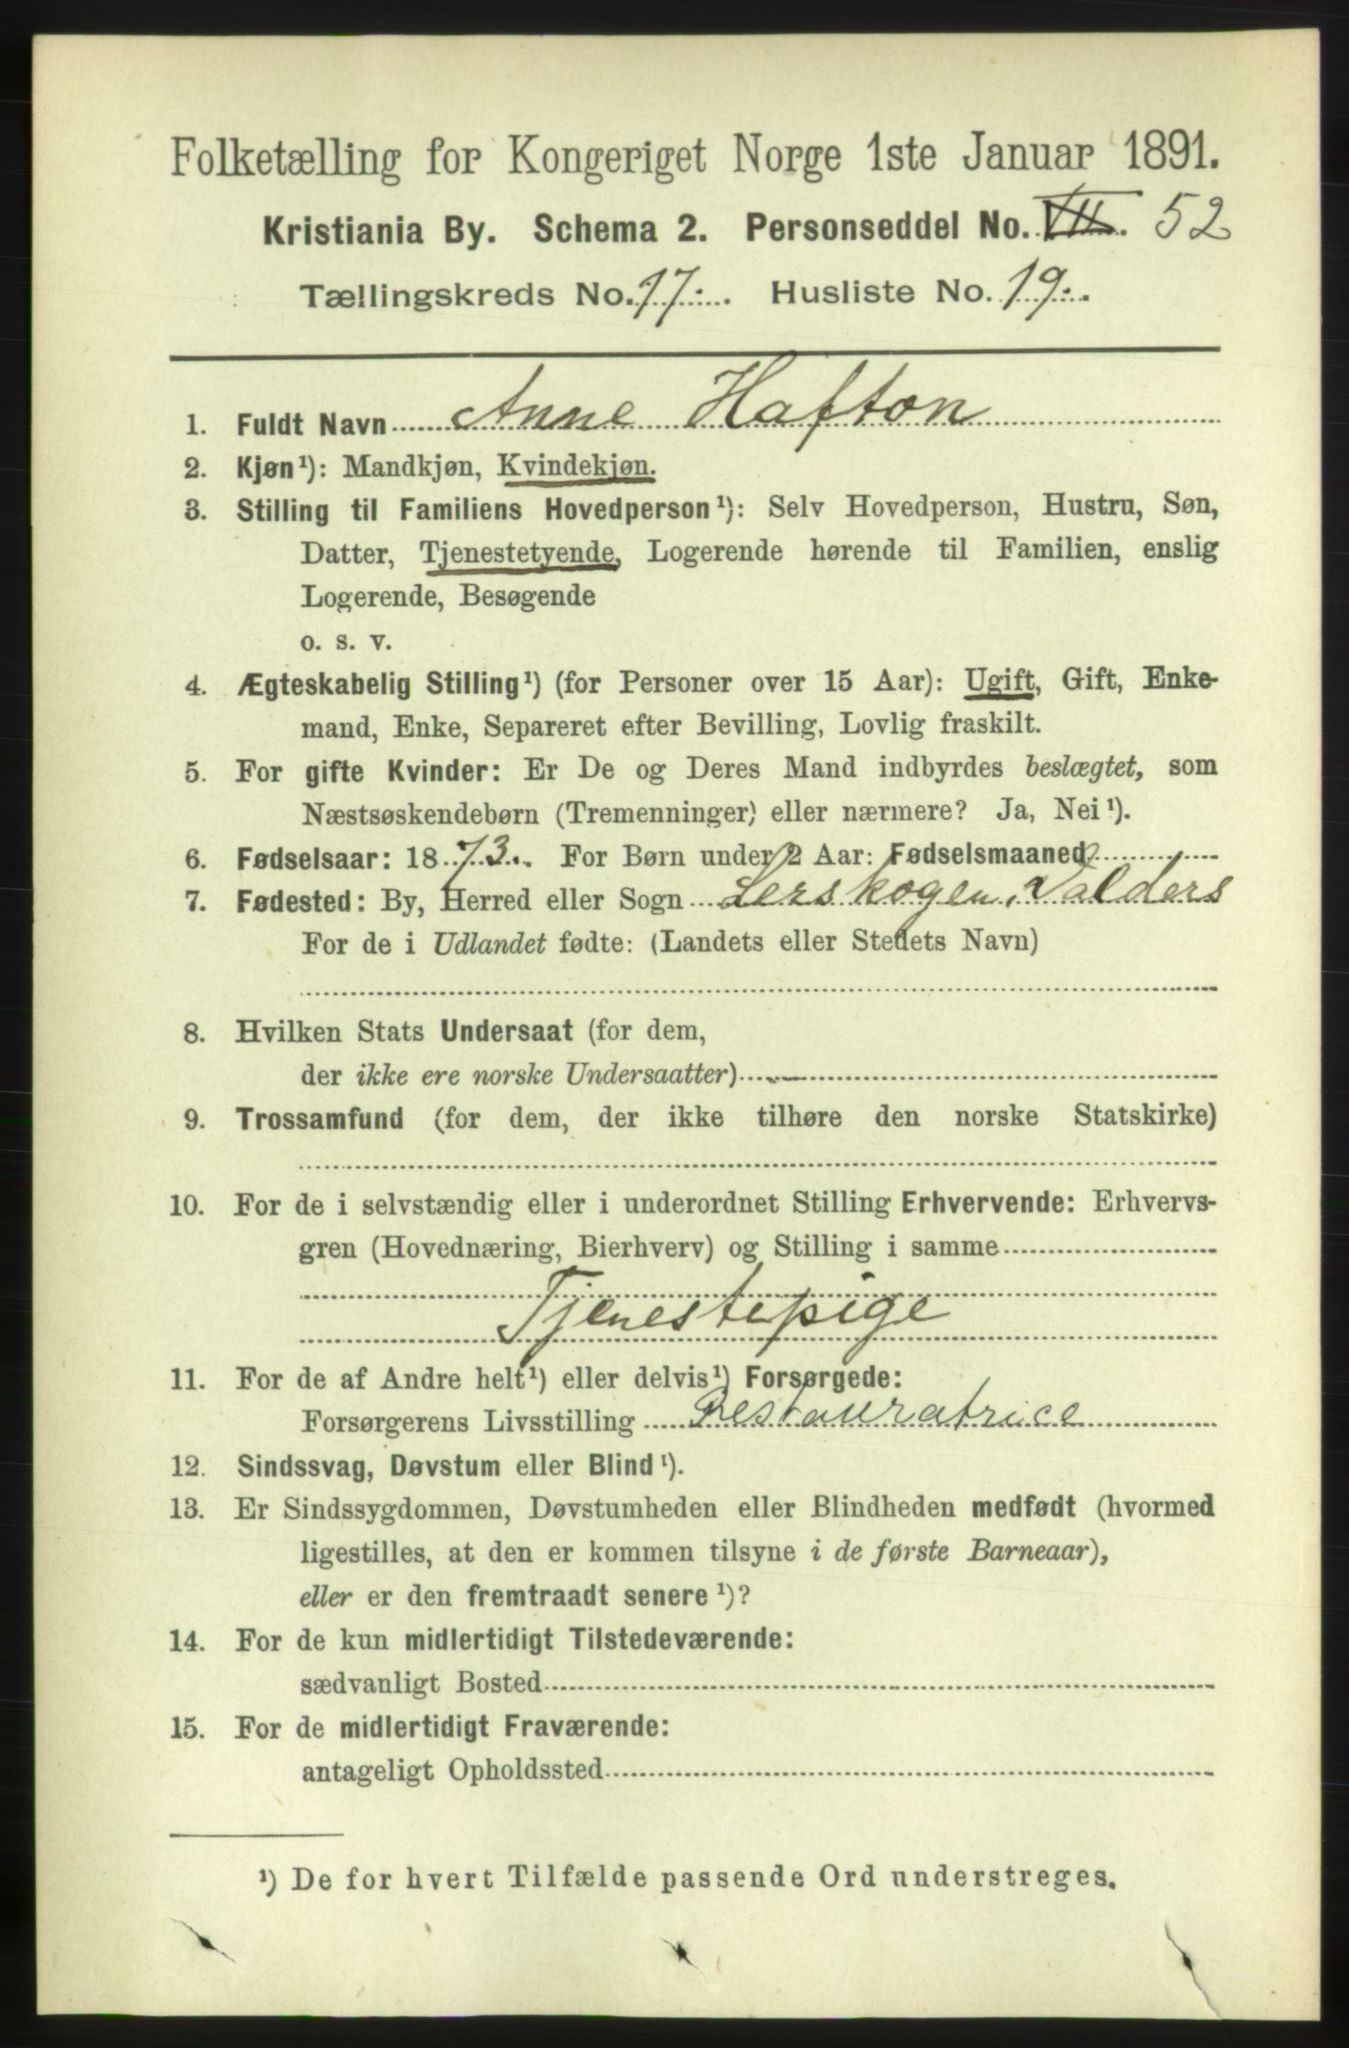 Folketælling for Kongeriget Norge 1ste Januar 1891.
Kristiania By. Schema 2. Personseddel No. VII. 52
Tællingskreds No. 17. Husliste No. 19.
1. Fuldt Navn Anne Hafton
2. Kjøn¹): Mandkjøn, Kvindekjøn.
3. Stilling til Familiens Hovedperson¹): Selv Hovedperson, Hustru, Søn,
Datter, Tjenestetyende, Logerende hørende til Familien, enslig
Logerende, Besøgende
o. s. v.
4. Ægteskabelig Stilling¹) (for Personer over 15 Aar): Ugift, Gift, Enke-
mand, Enke, Separeret efter Bevilling, Lovlig fraskilt.
5. For gifte Kvinder: Er De og Deres Mand indbyrdes beslægtet, som
Næstsøskendebørn (Tremenninger) eller nærmere? Ja, Nei¹).
6. Fødselsaar: 1873. For Børn under 2 Aar: Fødselsmaaned
7. Fødested: By, Herred eller Sogn Lerskogen, Valders
For de i Udlandet fødte: (Landets eller Stedets Navn)
8. Hvilken Stats Undersaat (for dem,
der ikke ere norske Undersaatter)
9. Trossamfund (for dem, der ikke tilhøre den norske Statskirke)
10. For de i selvstændig eller i underordnet Stilling Erhvervende: Erhvervs-
gren (Hovednæring, Bierhverv) og Stilling i samme
Tjenestepige
11. For de af Andre helt¹) eller delvis¹) Forsørgede:
Forsørgerens Livsstilling Restauratrice
12. Sindssvag, Døvstum eller Blind¹).
13. Er Sindssygdommen, Døvstumheden eller Blindheden medfødt (hvormed
ligestilles, at den er kommen tilsyne i de første Barneaar),
eller er den fremtraadt senere¹)?
14. For de kun midlertidigt Tilstedeværende:
sædvanligt Bosted
15. For de midlertidigt Fraværende:
antageligt Opholdssted
¹) De for hvert Tilfælde passende Ord understreges.